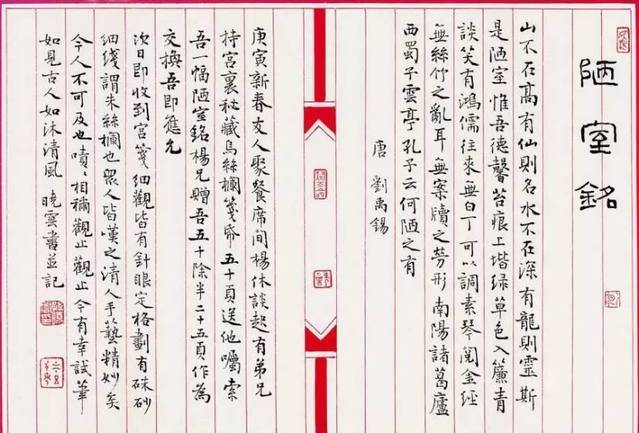 陋室銘
山不在高有仙則名水不在深有龍則靈斯
是陋室惟吾德馨苔痕上堦绿草色入簾青
談笑有鴻儒往來無白丁可以調素琴閱金經
無絲竹之亂耳無案牘之勞形南陽諸葛廬
西蜀子雲亭孔子云何陋之有
唐 劉禹錫
庚寅新春友人聚餐席間楊休談起有弟兄
持宮裏秘藏烏絲欄箋帋五十頁送他囑索
吾一幅陋室銘楊兄贈吾五十除半二十五頁作為
交換吾即應允
次日即收到宮箋細觀皆有針眼定格劃有硃砂
細綫謂朱絲欄也眾人皆嘆之清人手藝精妙矣
今人不可及也嘖嘖相稱觀止觀止今有幸試筆
如見古人如沐清風 曉雲書並記